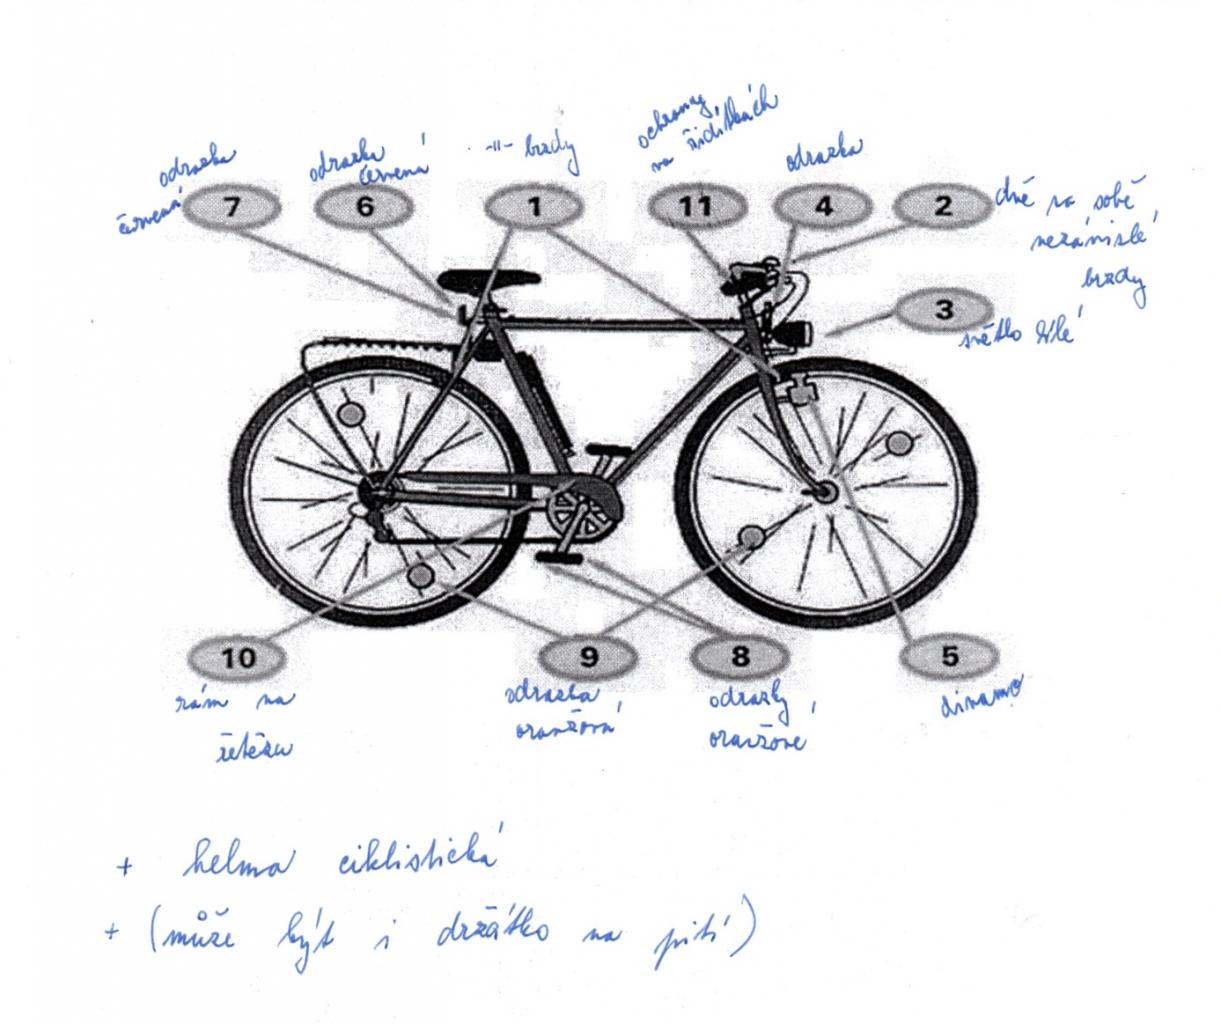 odrazka
červená
7
odrazka
červená
6
-11- brzdy
1
ochranny
na řidítkách
11
odrazka
4
2
dvě na sobě
nezávislé
brzdy
3
světlo bílé
10
rám na
řetězu
9
odrazka
oranžová
8
odrazky
oranžové
5
dinamo
+ helma ciklistická
+ (může být i držátko na pití)